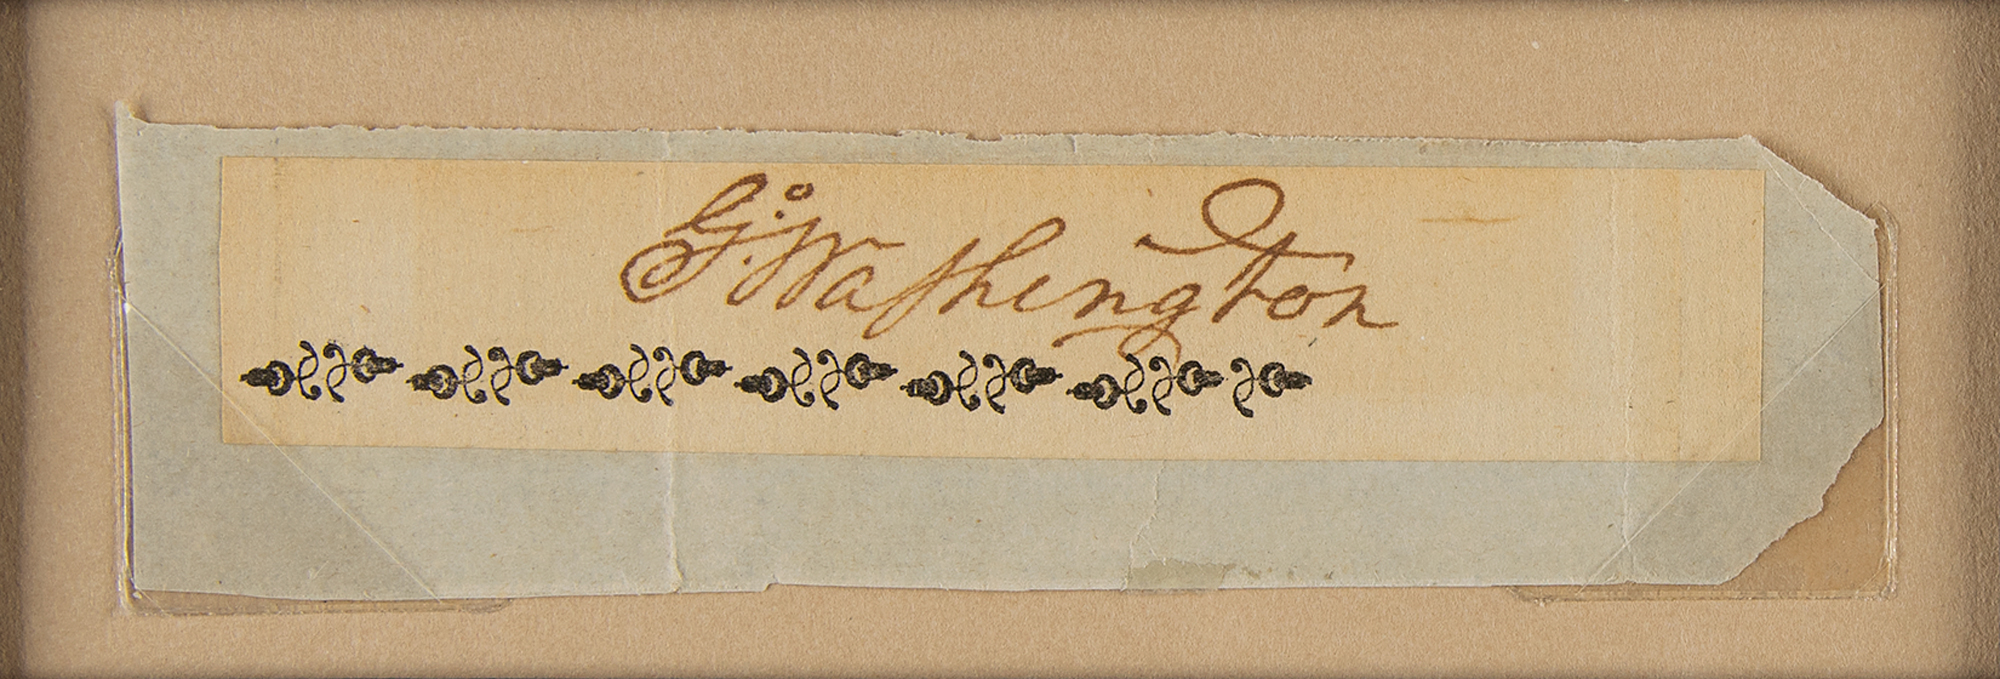 G:° Washington